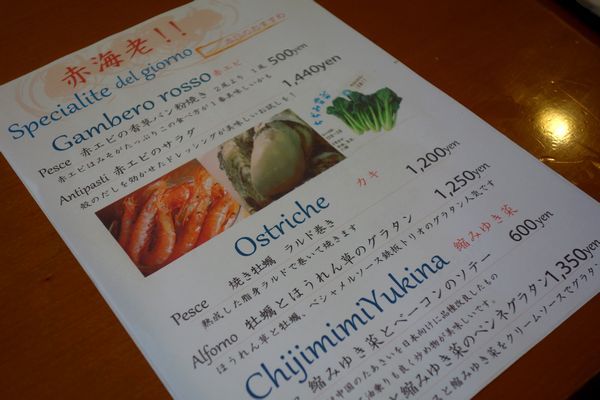 赤海老!!
Specialite del giorno
Gambero rosso 赤エビ
Pesce 赤エビの香草パン粉焼き 2尾より 1尾 500yen
赤エビはみそがたっぷりこの食べ方が1番美味しいかも
Antipasti 赤エビのサラダ 1,440yen
殻のだしを効かせたドレッシングが美味しいお試しを!
Ostriche カキ
Pesce 焼き牡蠣 ラルド巻き 1,200yen
熟成した脂身ラルドで巻いて焼きます
Alforno 牡蠣とほうれん草のグラタン 1,250yen
ほうれん草と牡蠣、ベシャメルソース鉄板トリオのグラタン人気です
ChijimimiYukina 縮みゆき菜
縮みゆき菜とベーコンのソテー 600yen
中国のたあさいを日本向けに品種改良したもの
て油乗りも良く炒め物が美味しいです。
縮みゆき菜のペンネグラタン 1,350yen
と縮みゆき菜をクリームソースでグラタ